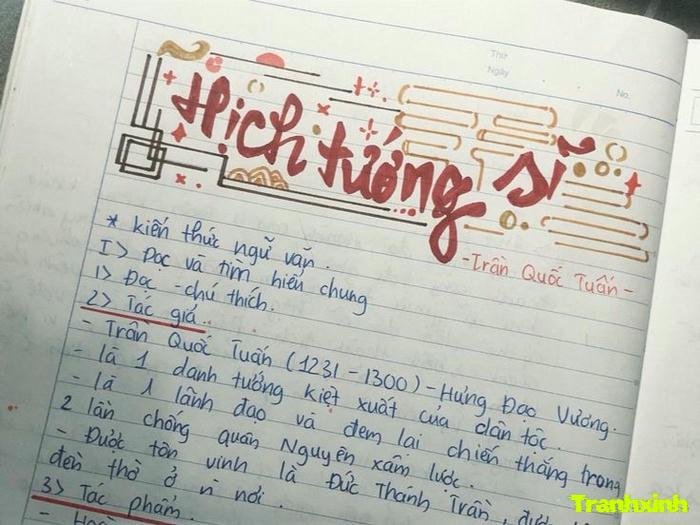 Thứ
Ngày
No.
Hịch tướng sĩ
-Trần Quốc Tuấn-
* kiến thức ngữ văn.
I> Đọc và tìm hiểu chung
1> Đọc - chú thích.
2> Tác giả.
- Trần Quốc Tuấn (1231-1300) - Hưng Đạo Vương.
- là 1 danh tướng kiệt xuất của dân tộc.
- là 1 lãnh đạo và đem lại chiến thắng trong
2 lần chống quân Nguyên xâm lược.
- Được tôn vinh là Đức Thánh Trần,
đền thờ ở n nơi.
3> Tác phẩm.
Tranhxinh